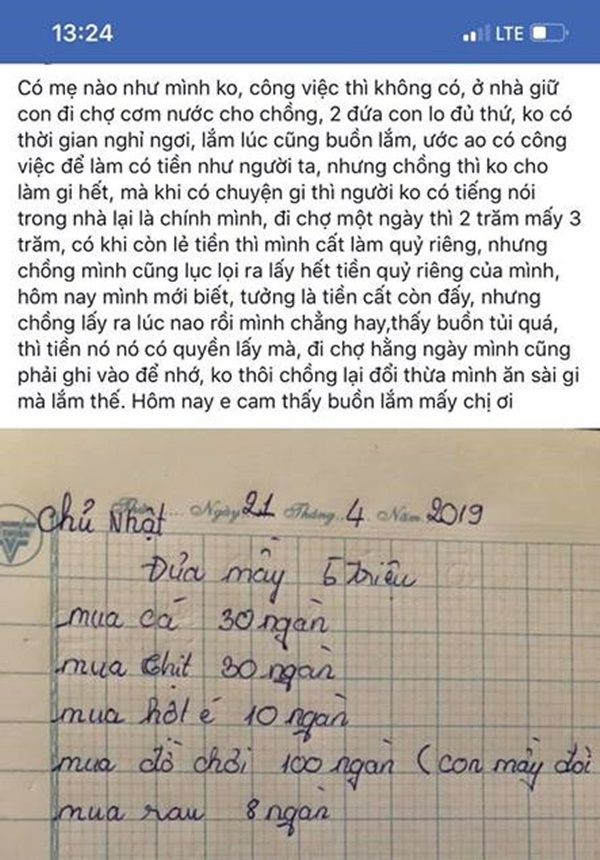 13:24 LTE
Có mẹ nào như mình ko, công việc thì không có, ở nhà giữ
con đi chợ cơm nước cho chồng, 2 đứa con lo đủ thứ, ko có
thời gian nghỉ ngơi, lắm lúc cũng buồn lắm, ước ao có công
việc để làm có tiền như người ta, nhưng chồng thì ko cho
làm gi hết, mà khi có chuyện gi thì người ko có tiếng nói
trong nhà lại là chính mình, đi chợ một ngày thì 2 trăm mấy 3
trăm, có khi còn lẻ tiền thì mình cất làm quỷ riêng, nhưng
chồng mình cũng lục lọi ra lấy hết tiền quỷ riêng của mình,
hôm nay mình mới biết, tưởng là tiền cất còn đấy, nhưng
chồng lấy ra lúc nao rồi mình chẳng hay,thấy buồn tủi quá,
thì tiền nó nó có quyền lấy mà, đi chợ hằng ngày mình cũng
phải ghi vào để nhớ, ko thôi chồng lại đổi thừa mình ăn sài gi
mà lắm thế. Hôm nay e cam thấy buồn lắm mấy chị ơi
Chủ Nhật Ngày 21 Tháng 4 Năm 2019
Đưa mầy 5 triệu
mua cá 30 ngàn
mua thịt 30 ngàn
mua hột é 10 ngàn
mua đồ chơi 100 ngàn (con mầy đòi
mua rau 8 ngàn